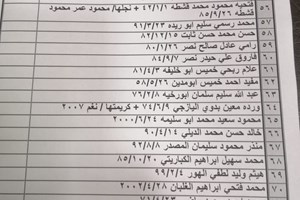 ٥٦ فتحيه محمود محمد قشطه ٤٢/١/١ + نجلها/ محمود عمر محمود
قشطه ٨٥/٩/٢٦
٥٧ محمد رسمي سليم ابو ريده ٩١/٣/٢٣
٥٨ محمد حسن ثابت ٨٢/١٢/١٥
٥٩ رامي عادل صالح نصر ٨٠/١/٢٦
٦٠ فاروق علي حيدر نصر ٨٤/٩/٧
٦١ علام ربحي خميس ابو خليفه ٨١/٤/٣
٦٢ مفيد احمد خميس ابومدين ٥٨/٥/٢٦
٦٣ عبد الله سليم سلمان ابورخيه ٧٦/٢/٨
٦٤ ورده معين بدوي اليازجي ٧٤/٦/٩ + كريمتها/ نغم ٢٠٠٧
٦٥ محمود سعيد محمد ابو سليمه ٢٠٠٠/٦/٢٤
٦٦ خالد حسن محمد الديلي ٩٠/٤/١٤
٦٧ منذر محمود سليمان المصدر ٩٢/٨/٨
٦٨ محمد سهيل ابراهيم الكباريتي ٨٥/١٠/٢٠
٦٩ هيثم وليد لطفي الهور ٩٩/٢/٤
٧٠ محمد فتحي ابراهيم الغلبان ٢٠٠٢/٤/٢٨